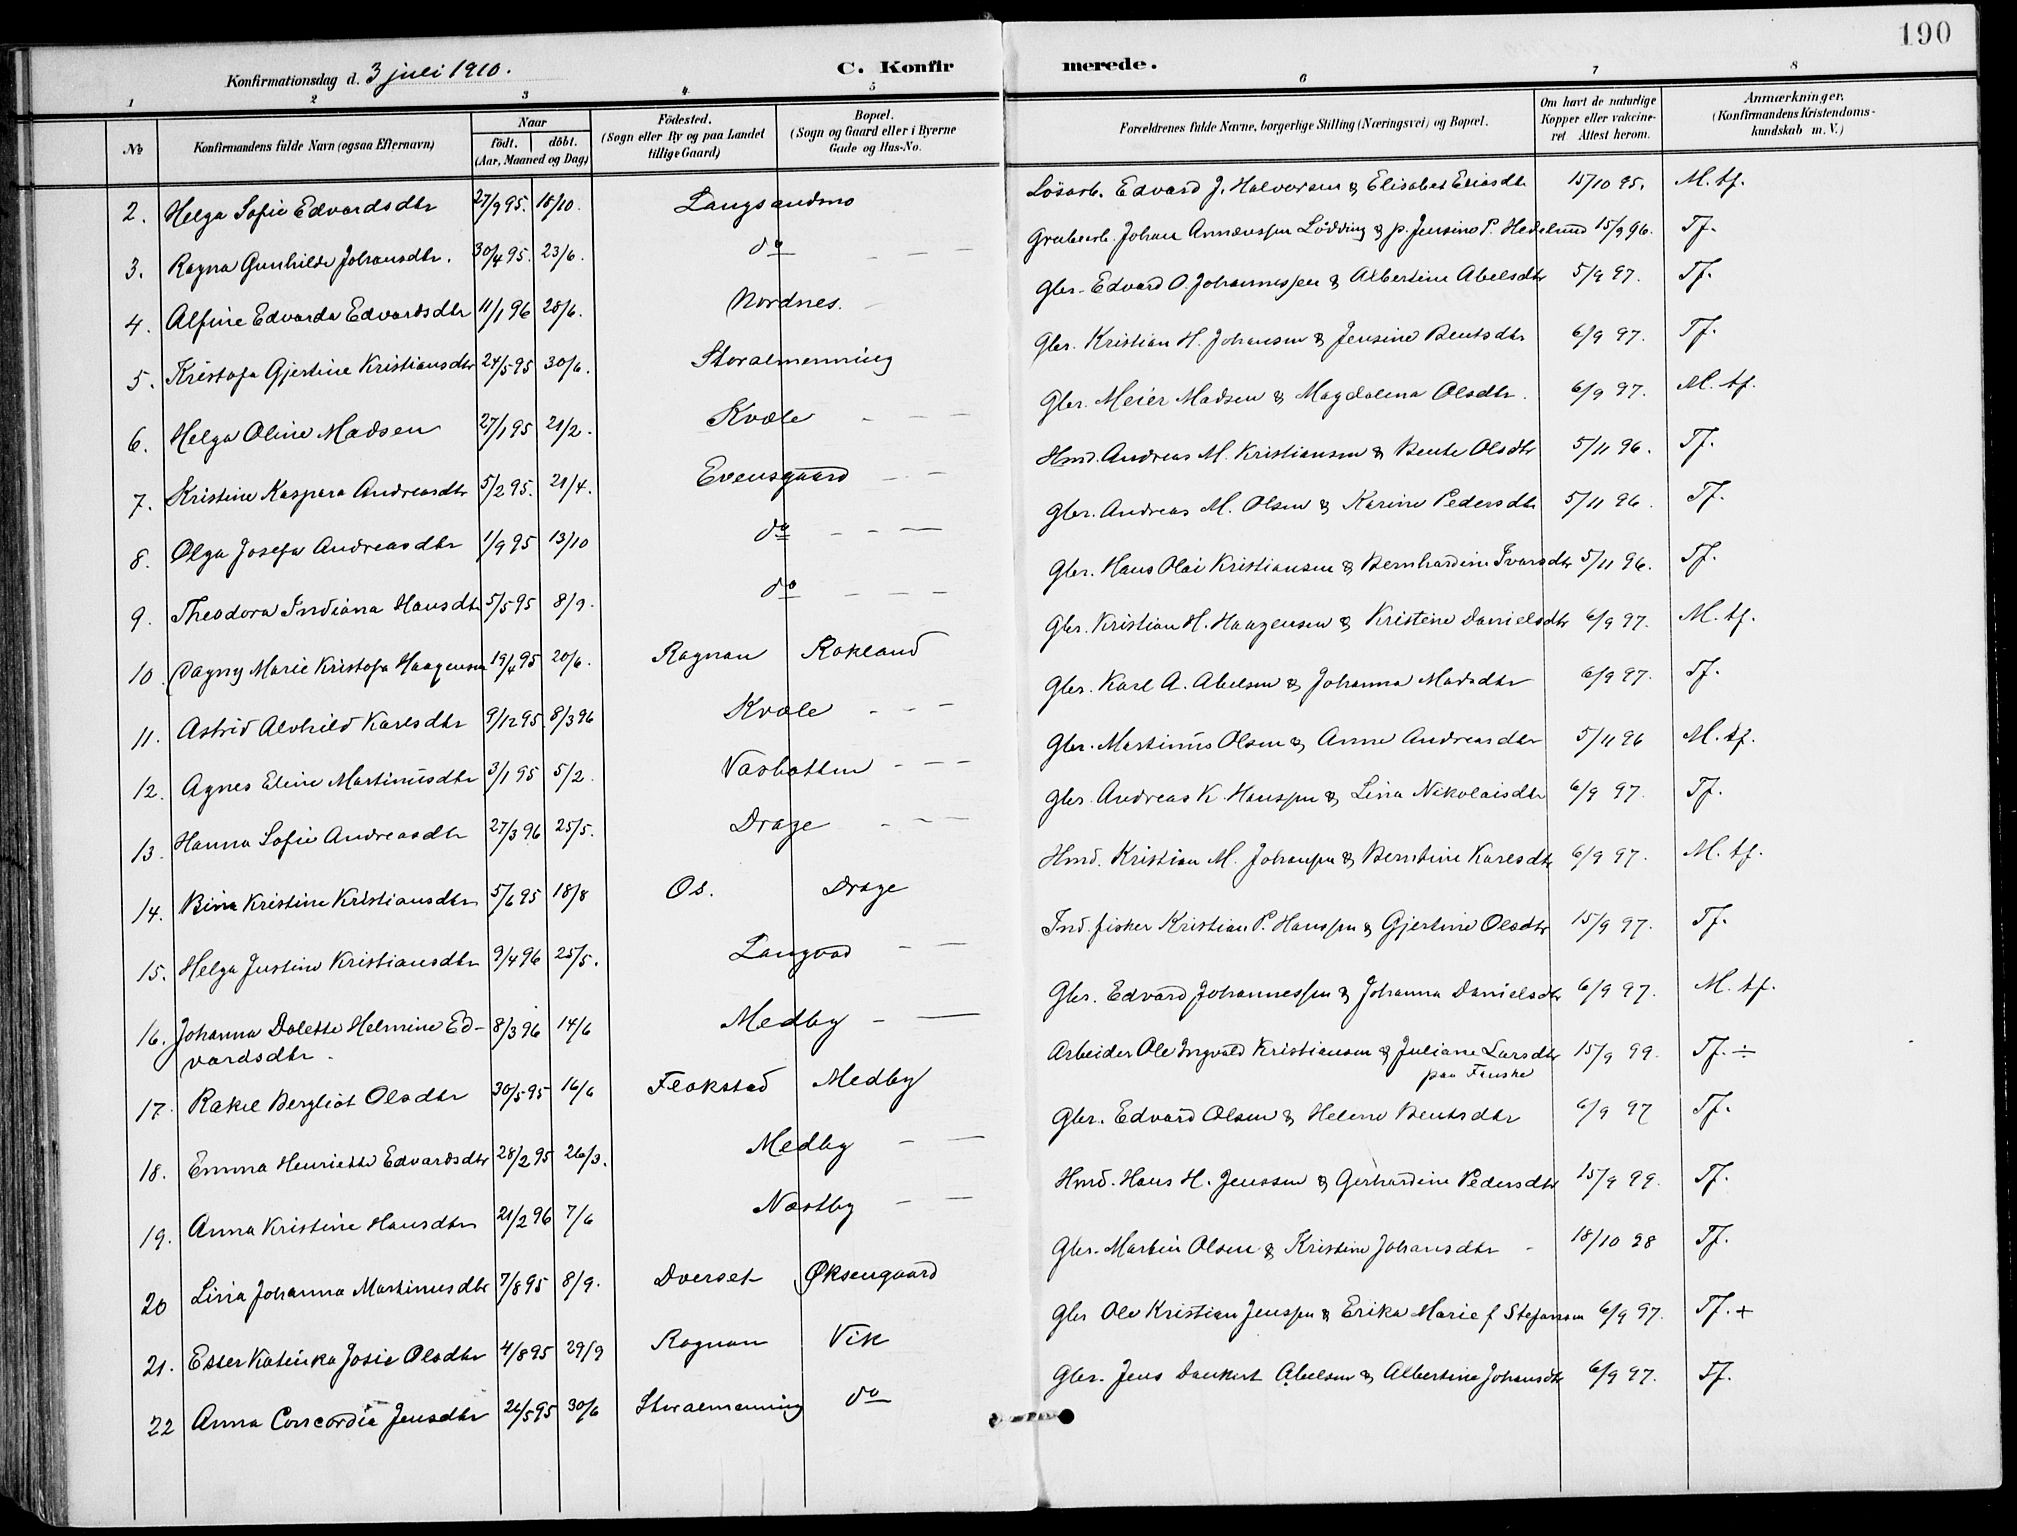 190
Konfirmationsdag d. 3 juli 1910.
C. Konfirmerede.
1 2 3 4 5 6 7 8
No
Konfirmandens fulde Navn (ogsaa Efternavn)
Naar
födt. döbt.
(Aar, Maaned og Dag)
Födested.
(Sogn eller By og paa Landet
tillige Gaard)
Bopæl.
(Sogn og Gaard eller i Byerne
Gade og Hus-No.
Forældrenes fulde Navne, borgerlige Stilling (Næringsvei) og Bopæl.
Om havt de naturlige
Kopper eller vakcine-
ret Attest herom.
Anmærkninger.
(Konfirmandens Kristendoms-
kundskab m. V.)
2. Helga Sofie Edvardsdtr 27/9 95. 15/10. Langsandmo Lösarb. Edvard J. Halvorsen & Elisabet Eliasdtr 15/10 95. M. tf.
3. Ragna Gunhilde Johansdtr. 30/4 95. 23/6. do Grubearb. Johan Annæussen Lödding & p. Jensine P. Hedelund 15/9 96. Tf.
4. Alfine Edvarda Edvardsdtr 11/1 96 28/6. Nordnes. Gbr. Edvard O. Johannessen & Albertine Abelsdtr 5/9 97. Tf.
5. Kristofa Gjertine Kristiansdtr 24/5 95 30/6. Storalmenning Gbr. Kristian H. Johansen & Jensine Bentsdtr 6/9 97. Tf.
6. Helga Oline Madsen 27/1 95 21/2. Kvæle Gbr. Meier Madsen & Magdalena Olsdtr. 6/9 97. M. tf.
7. Kristine Kaspara Andreasdtr 5/2 95. 21/4. Evensgaard Hmd. Andreas M. Kristiansen & Bente Olsdtr 5/11 96. Tf.
8. Olga Josefa Andreasdtr 1/9 95 13/10 do Gbr. Andreas M. Olsen & Karine Pedersdtr 5/11 96. Tf.
9. Theodora Indiana Hansdtr 5/5 95 8/9. do Gbr. Hans Olai Kristiansen & Bernhardine Ivarsdtr 5/11 96. Tf.
10. Dagny Marie Kristofa Haagensen 19/4 95 20/6. Rognan Rokland Gbr. Kristian H. Haagensen & Kristine Danielsdtr 6/9 97. M. tf.
11. Astrid Alvhild Karlsdtr 9/12 95. 8/3 96 Kvæle Gbr. Karl A. Abelsen & Johanna Madsdtr 6/9 97. Tf.
12. Agnes Eline Martinusdtr 3/1 95 5/2. Vasbotten Gbr. Martinus Olsen & Anne Andreasdtr 5/11 96 M. tf.
13. Hanna Sofie Andreasdtr 27/3 96 25/5. Drage Gbr. Andreas K. Hanssen & Lina Nikolaisdtr 6/9 97. Tf.
14. Bina Kristine Kristiansdtr 5/6 95 18/8 Os. Drage Hmd. Kristian M. Johansen & Berntine Karlsdtr 6/9 97. M. tf.
15. Helga Justine Kristiansdtr 9/4 96 25/5. Langvad Ind. fisker Kristian P. Hanssen & Gjertine Olsdtr 15/9 97. Tf.
16. Johanna Dolette Helmine Ed-
vardsdtr. 8/3 96 14/6 Medby Gbr. Edvard Johannessen & Johanna Danielsdtr 6/9 97. M. tf.
17. Rakel Bergliot Olsdtr 30/5 95 16/6 Flakstad Medby Arbeider Ole Ingvald Kristiansen & Juliane Larsdtr 15/9 99. Tf. ÷
paa Fauske
18. Emma Henriette Edvardsdtr 28/2 95 26/3. Medby Gbr. Edvard Olsen & Helene Bentsdtr 6/9 97 Tf.
19. Anna Kristine Hansdtr 21/2 96 7/6 Næstby Hmd. Hans H. Jenssen & Gerhardine Pedersdtr 15/9 99. Tf.
20 Lina Johanna Martinusdtr 7/8 95 8/9. Dverset Øksengaard Gbr. Martin Olsen & Kristine Johansdtr 18/10 98 Tf.
21. Ester Katinka Josie Olsdtr 4/8 95 29/9 Rognan Vik Gbr Ole Kristian Jenssen & Erika Marie f Stefansen 6/9 97. Tf. +
22 Anna Concordia Jensdtr 26/5 95 30/6 Storalmenning do Gbr. Jens Dankert Abelsen & Albertine Johansdtr 6/9 97. Tf.